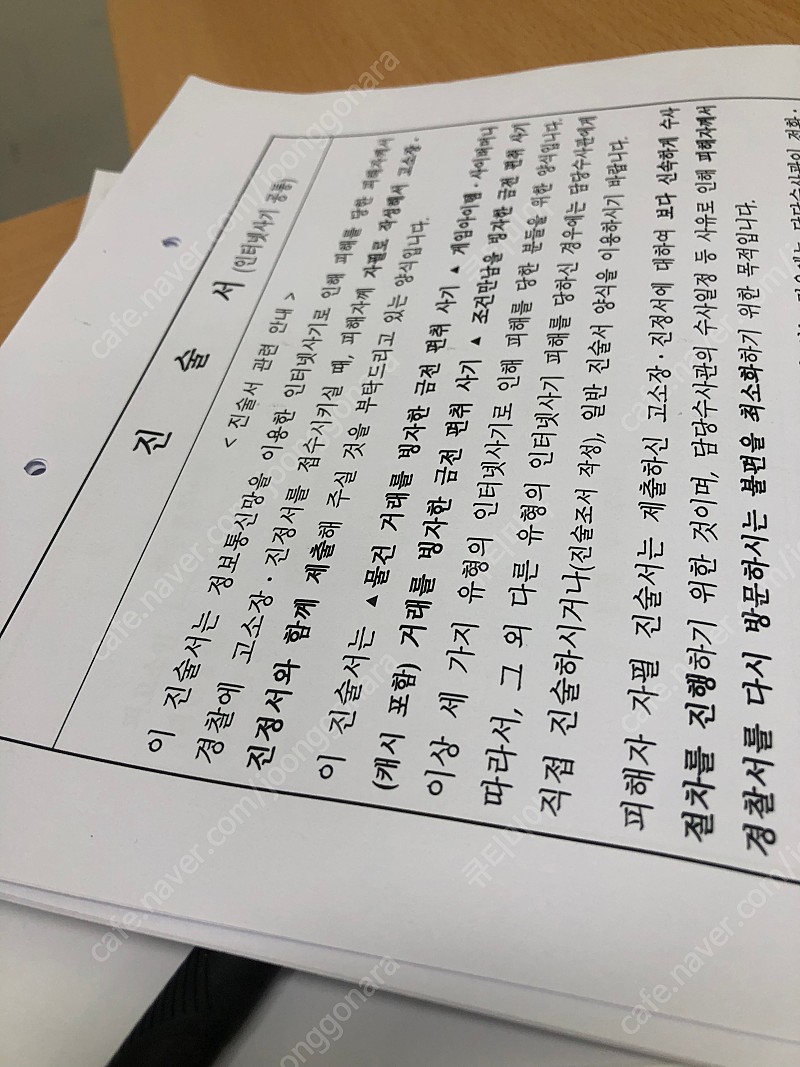 진 술 서 (인터넷사기 공통)
< 진술서 관련 안내 >
이 진술서는 정보통신망을 이용한 인터넷사기로 인해 피해를 당한 피해자께서
경찰에 고소장·진정서를 접수시키실 때, 피해자께 자필로 작성해서 고소장·
진정서와 함께 제출해 주실 것을 부탁드리고 있는 양식입니다.
이 진술서는 ▲물건 거래를 빙자한 금전 편취 사기 ▲ 게임아이템·사이버머니
(캐시 포함) 거래를 빙자한 금전 편취 사기 ▲ 조건만남을 빙자한 금전 편취 사기
이상 세 가지 유형의 인터넷사기로 인해 피해를 당한 분들을 위한 양식입니다.
따라서, 그 외 다른 유형의 인터넷사기 피해를 당하신 경우에는 담당수사관에게
직접 진술하시거나(진술조서 작성), 일반 진술서 양식을 이용하시기 바랍니다.
피해자 자필 진술서는 제출하신 고소장·진정서에 대하여 보다 신속하게 수사
절차를 진행하기 위한 것이며, 담당수사관의 수사일정 등 사유로 인해 피해자께서
경찰서를 다시 방문하시는 불편을 최소화하기 위한 목적입니다.
담당수사관의 전화·
cafe.naver.com/joonggonara